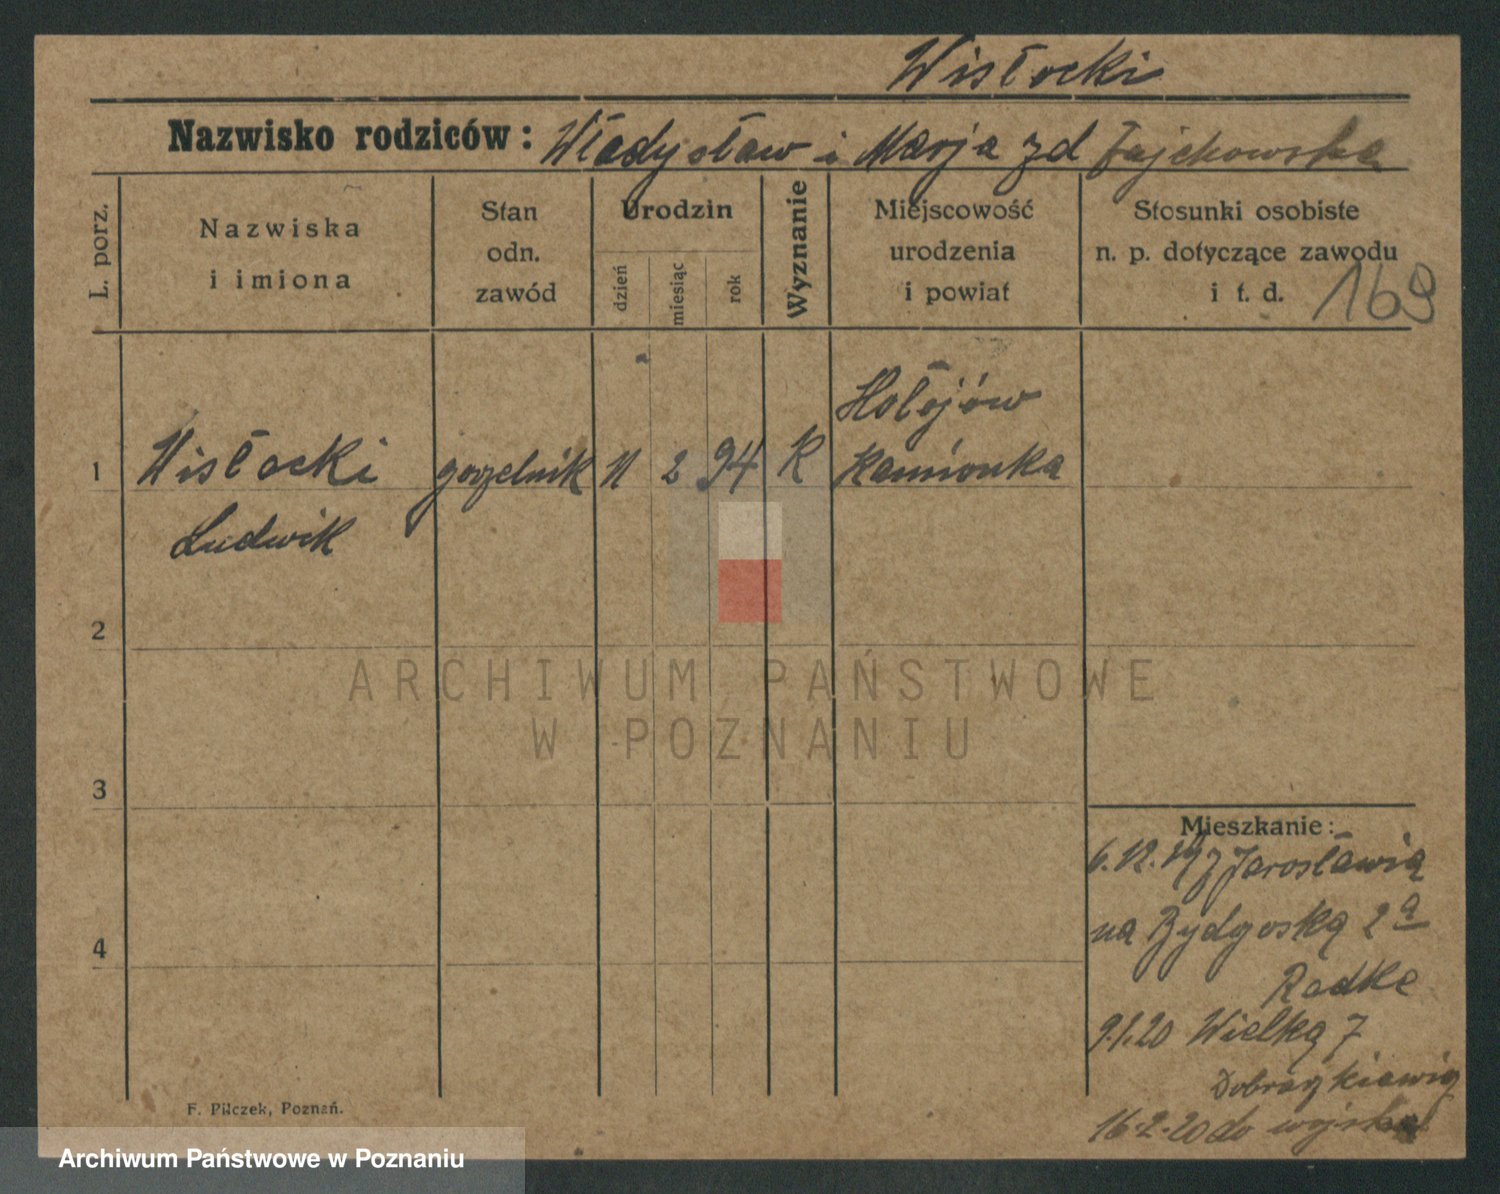 Wisłocki
Nazwisko rodziców: Władysław i Marja zd Zajchowska
L. porz.
Nazwiska
i imiona
Stan
odn.
zawód
Urodzin
dzień
miesiąc
rok
Wyznanie
Miejscowość
urodzenia
i powiat
Stosunki osobiste
n. p. dotyczące zawodu
i t. d.
169
Hołojów
1 Wisłocki gorzelnik 11 2 94 K Kamionka
Ludwik
2
3
4
Mieszkanie:
6.12.19 z Jarosławia
na Bydgoską 2a
Radke
9.1.20 Wielką 7
16.2.20 do wojska
F. Pilczek, Poznań.
ARCHIWUM PAŃSTWOWE
W POZNANIU
Archiwum Państwowe w Poznaniu